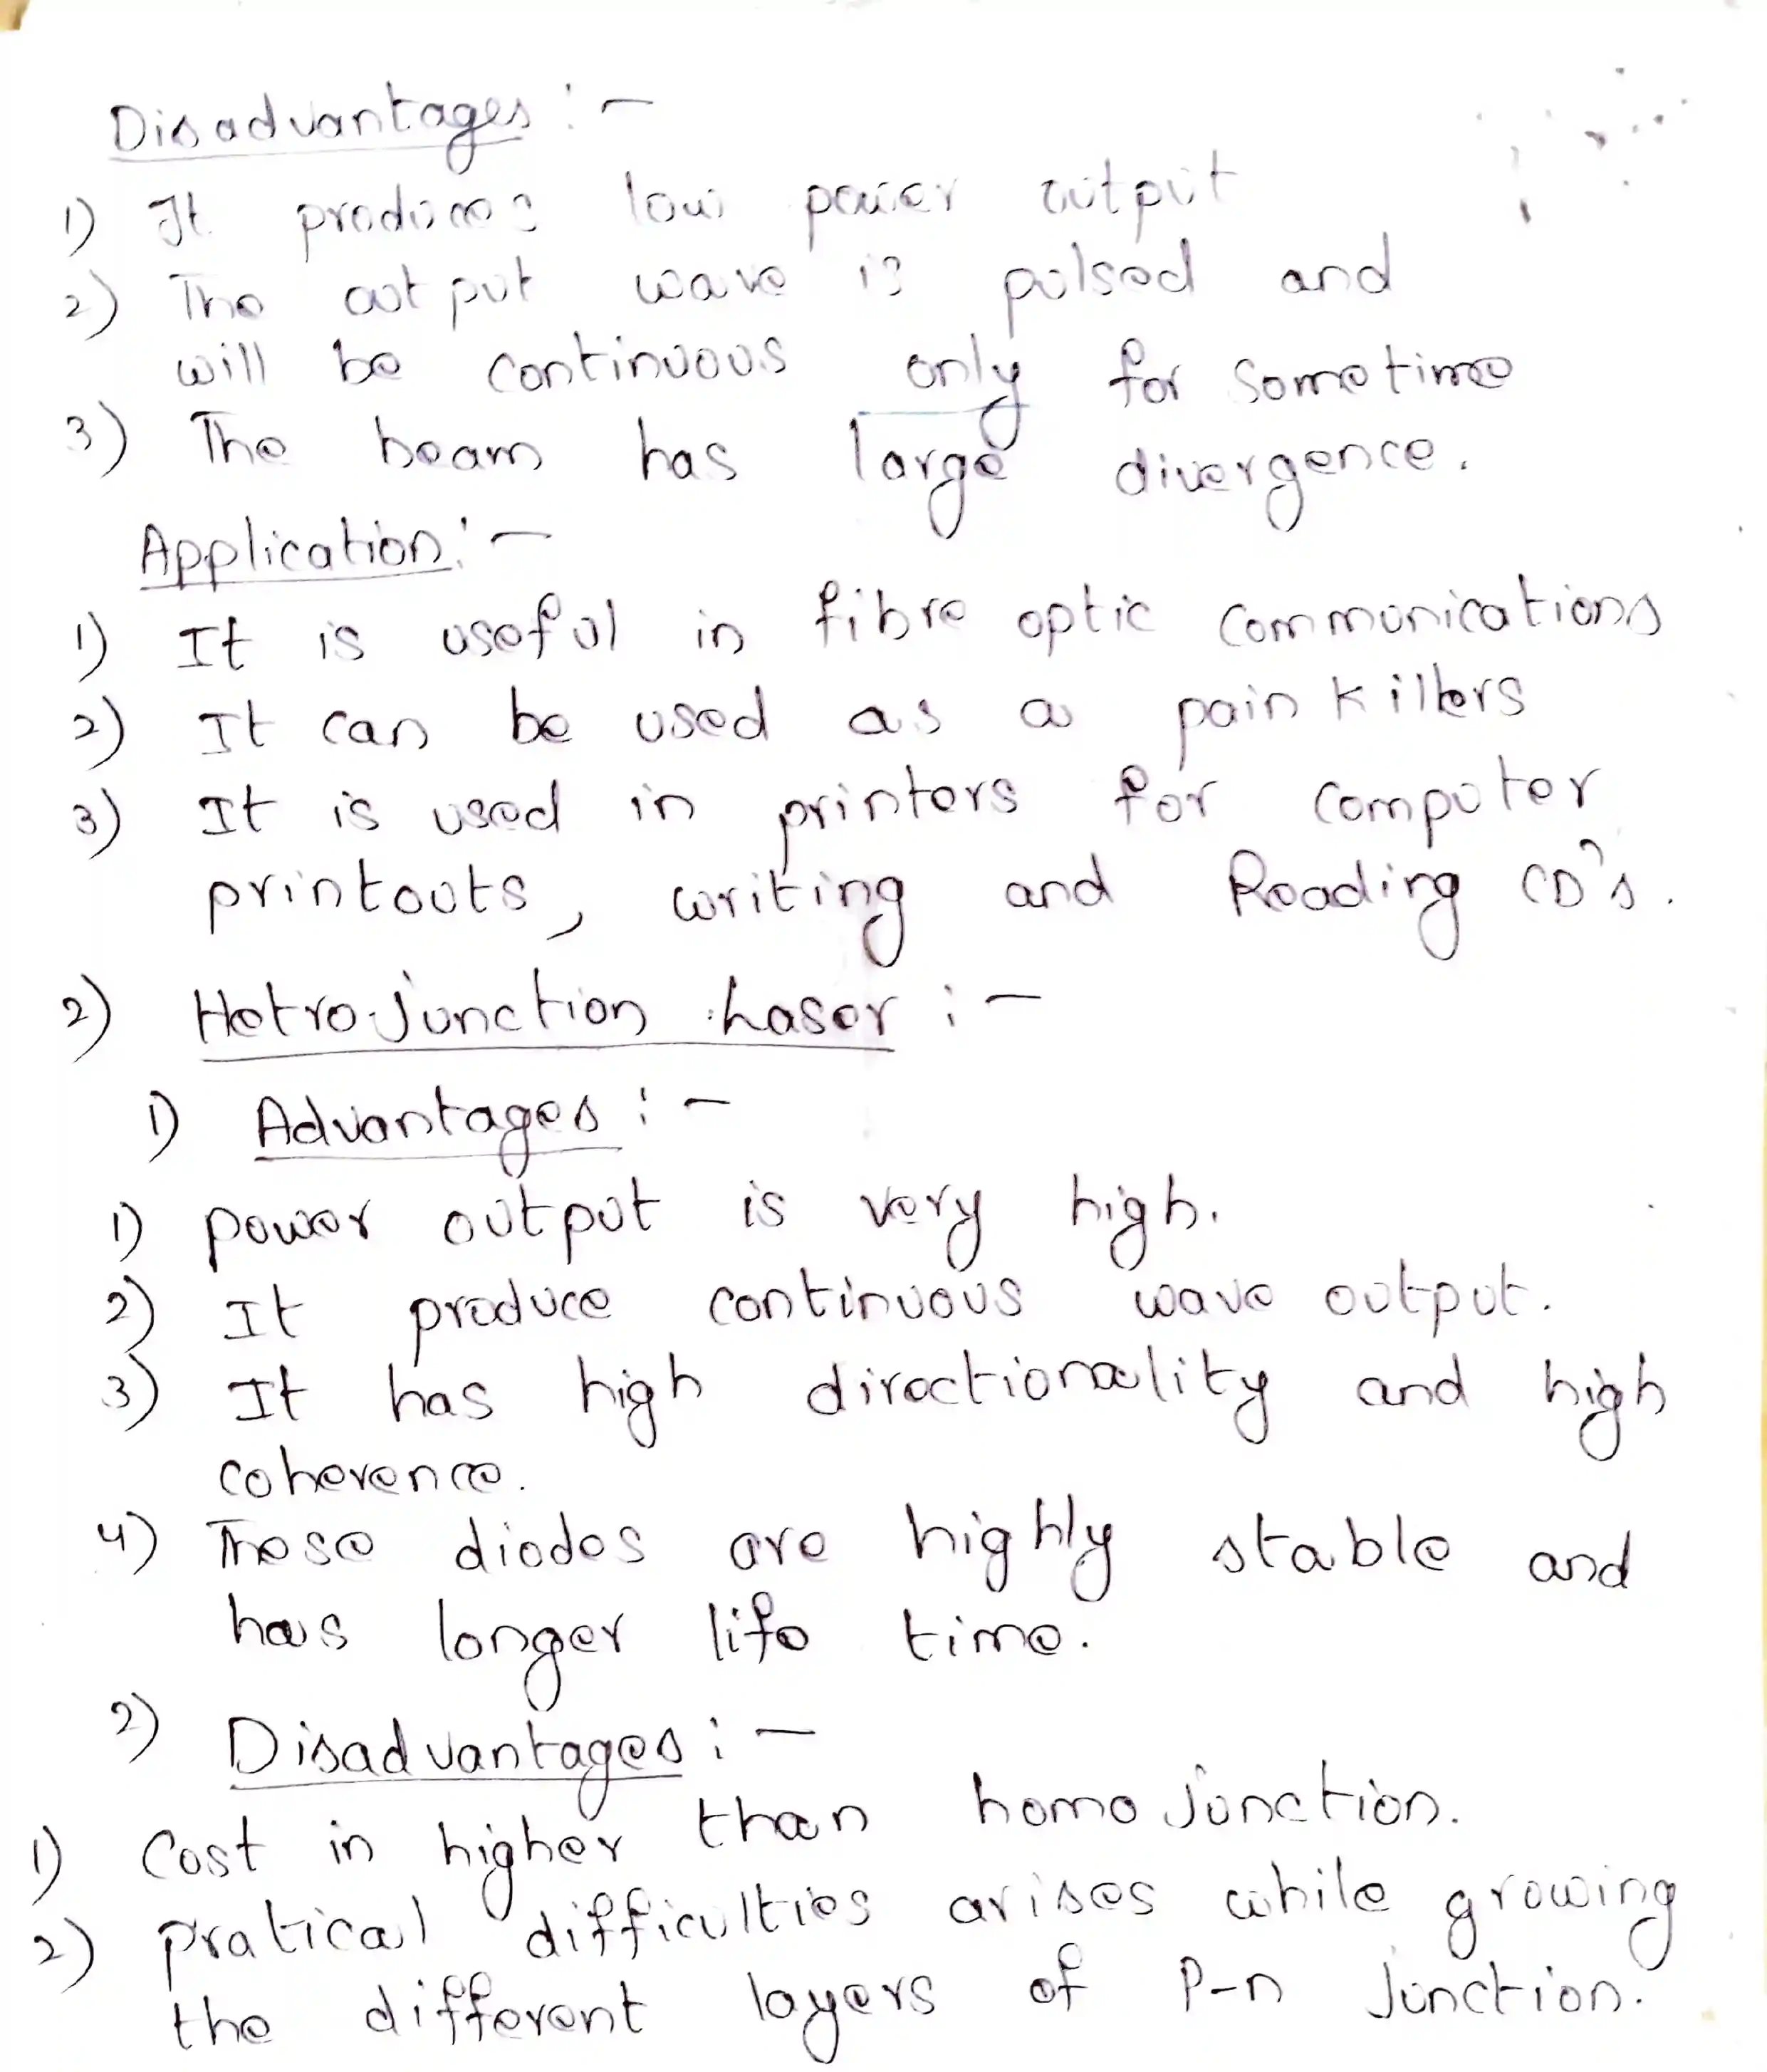 Disadvantages :-
1) It produces low power output
2) The out put wave is pulsed and
will be continuous only for sometime
3) The beam has large divergence.
Application :-
1) It is useful in fibre optic communications
2) It can be used as a pain killers
3) It is used in printers for computer
printouts, writing and Reading CD's.
2) Hetro-junction Laser :-
1) Advantages :-
1) power output is very high.
2) It produce continuous wave output.
3) It has high directionality and high
coherence.
4) These diodes are highly stable and
has longer life time.
2) Disadvantages :-
1) Cost in higher than homo junction.
2) pratical difficulties arises while growing
the different layers of P-n junction.